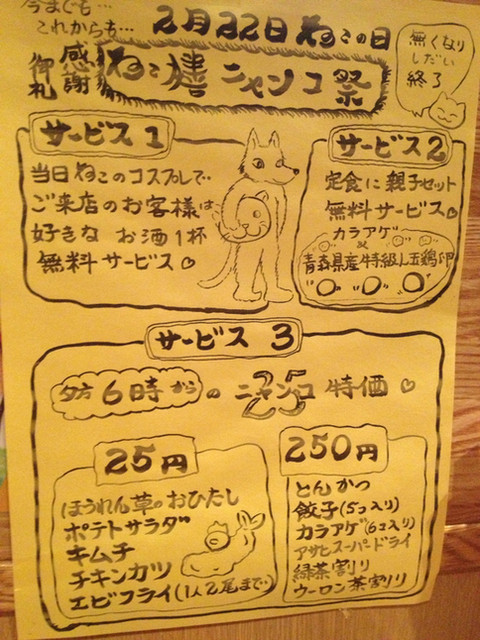 今までも…
これからも…
2月22日 ねこの日
感謝
御礼
ニャンコ祭
無くなり
しだい
終了
サービス1
当日ねこのコスプレで…
ご来店のお客様は
好きな お酒1杯
無料サービス♡
サービス2
定食に 親子セット
無料サービス♡
カラアゲ
&
青森県産特級L玉鶏卵
サービス 3
夕方 6時からの ニャンコ 特価 ♡
25
25円
ほうれん草のおひたし
ポテトサラダ
キムチ
チキンカツ
エビフライ(1人2尾まで)
250円
とんかつ
餃子(5コ入り)
カラアゲ(6コ入り)
アサヒスーパードライ
緑茶割り
ウーロン茶割り